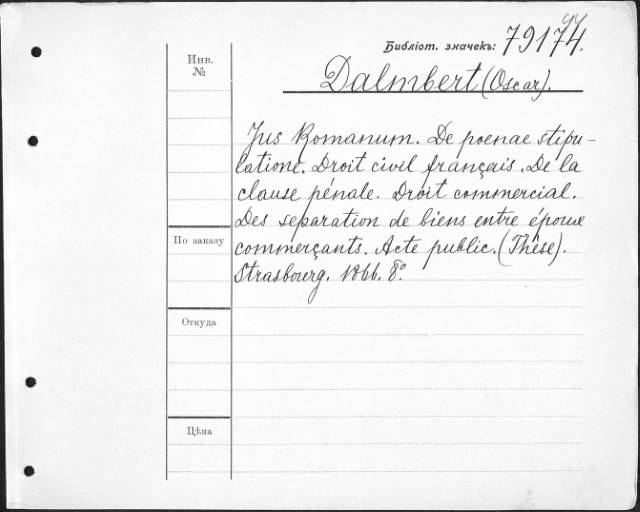 Библіот. значекъ: 79174.
Инв.
№
Dalmbert (Oscar).
Jus Romanum. De poenae stipu-
latione. Droit civil français. De la
clause pénale. Droit commercial.
Des separation de biens entre époux
По заказу
commerçants. Acte public. (Thèse).
Strasbourg. 1866. 8°.
Откуда
Цѣна